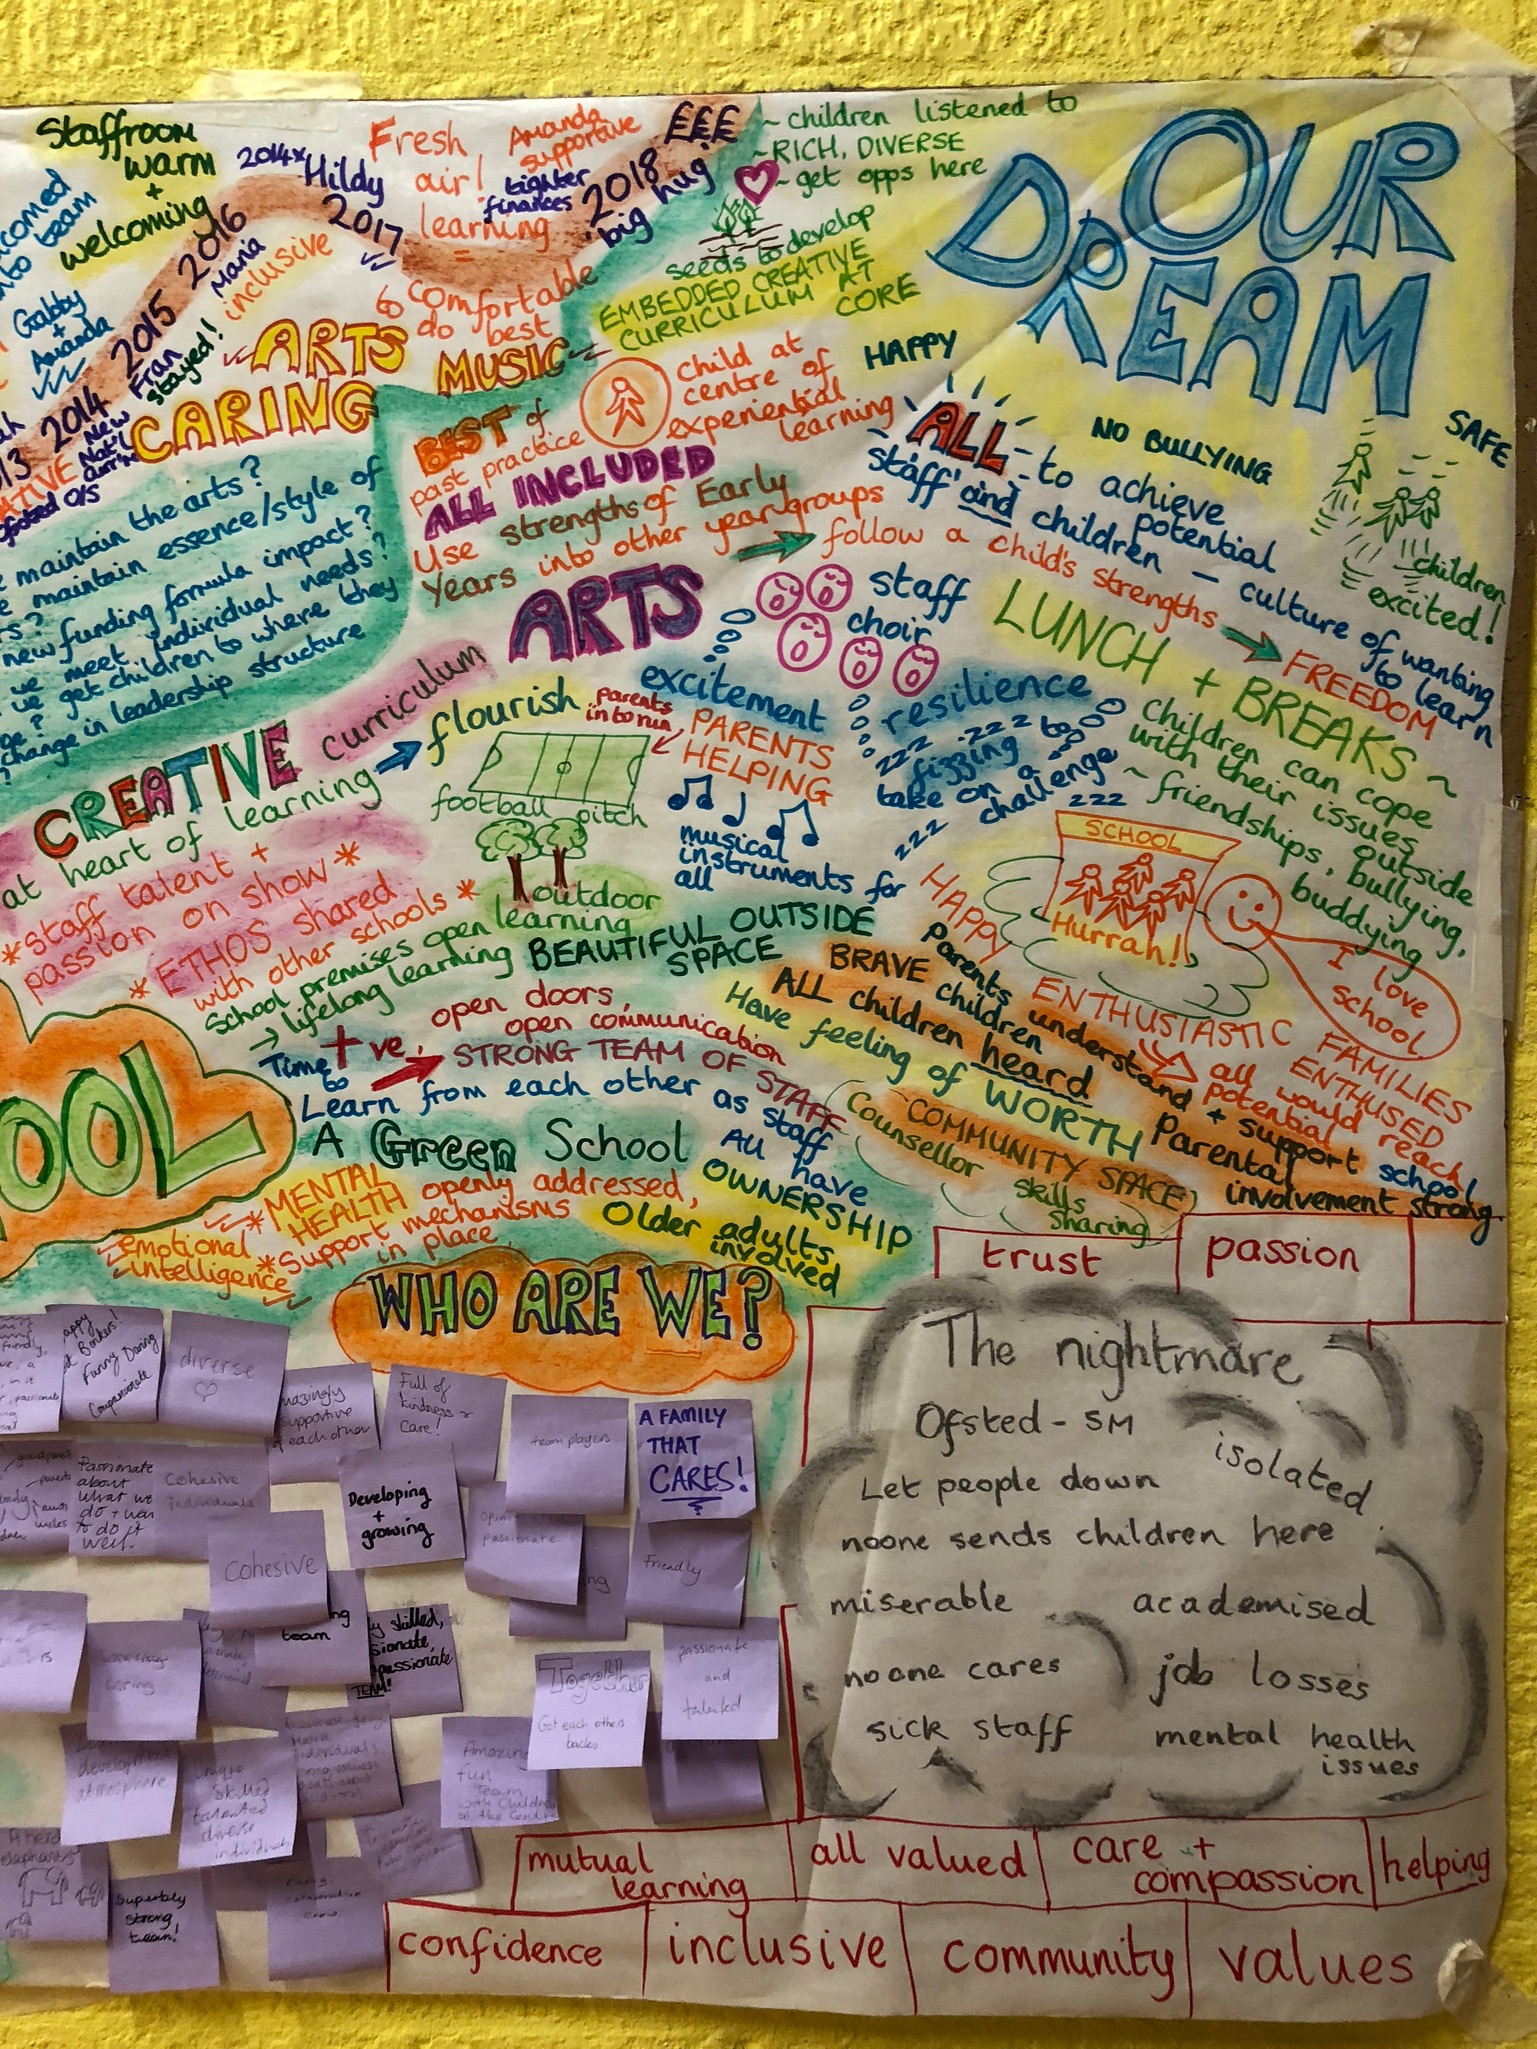 Staffroom
warm
+
welcoming
team
Gabby
+
Amanda
2014
New
Nat'l
2015
Fran
stayed!
2016
Maria
inclusive
2014x
Hildy
2017
Fresh
air!
learning
=
comfortable
to do best
Amanda
supportive
tighter
finances
2018
big hug
£££
ARTS
CARING
MUSIC
~ children listened to
~ RICH, DIVERSE
~ get opps here
seeds to develop
EMBEDDED CREATIVE
CURRICULUM AT
CORE
OUR
DREAM
maintain the arts?
maintain essence/style of
new funding formula impact?
meet individual needs?
get children to where they
change in leadership structure
BEST of
past practice
child at
centre of
experiential
learning
HAPPY
ALL INCLUDED
Use strengths of Early
Years into other year groups
follow a child's strengths
FREEDOM
ALL - to achieve
potential
staff and children - culture of wanting
to learn
NO BULLYING
SAFE
children
excited!
ARTS
staff
choir
excitement
resilience
zzz zzz to
fizzing
take on a
challenge
zzz
zzz
LUNCH + BREAKS ~
children can cope
with their issues
outside
~ friendships, bullying,
buddying
CREATIVE curriculum
at heart of learning
flourish
parents
into run
PARENTS
HELPING
football pitch
musical
instruments for
all
outdoor
learning
* staff talent +
passion on show *
* ETHOS shared
with other schools *
School premises open
→ lifelong learning
BEAUTIFUL OUTSIDE
SPACE
SCHOOL
Hurrah!
I
love
school
HAPPY
ENTHUSIASTIC FAMILIES
all ENTHUSED
would reach
potential
BRAVE children
ALL children heard
Have feeling of WORTH
Parents
understand + support school
Parental
involvement strong
COMMUNITY SPACE
Counsellor
skills
sharing
+ve, open doors,
open communication
STRONG TEAM OF STAFF
Time
to
Learn from each other as staff
A Green School
All have
OWNERSHIP
Older adults
involved
* MENTAL
HEALTH openly addressed,
* Support mechanisms
in place
emotional
intelligence
OOL
WHO ARE WE?
Funny Daring
Compassionate
diverse
supportive
of each other
Full of
kindness +
Care!
team players
A FAMILY
THAT
CARES!
Passionate
about
what we
do + want
to do it
well.
Cohesive
individuals
Developing
+
growing
passionate
Cohesive
Friendly
team
skilled,
TEAM!
caring
Together
Got each others
backs
passionate
and
talented
development
atmosphere
Unique
skilled
talented
diverse
individuals
Amazing
fun
Team
with Children
at the Centre
elephants
Superbly
strong
team!
trust
passion
The nightmare
Ofsted - SM
isolated
Let people down
noone sends children here
miserable
academised
noone cares
job losses
sick staff
mental health
issues
mutual
learning
all valued
care +
compassion
helping
confidence
inclusive
community
values